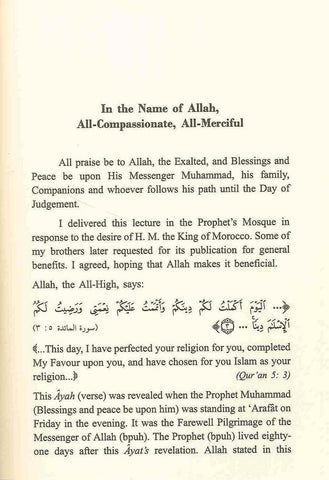 In the Name of Allah,
All-Compassionate, All-Merciful
All praise be to Allah, the Exalted, and Blessings and
Peace be upon His Messenger Muhammad, his family,
Companions and whoever follows his path until the Day of
Judgement.
I delivered this lecture in the Prophet's Mosque in
response to the desire of H. M. the King of Morocco. Some of
my brothers later requested for its publication for general
benefits. I agreed, hoping that Allah makes it beneficial.
Allah, the All-High, says:
﴿... ٱلْيَوْمَ أَكْمَلْتُ لَكُمْ دِينَكُمْ وَأَتْمَمْتُ عَلَيْكُمْ نِعْمَتِى وَرَضِيتُ لَكُمُ
ٱلْإِسْلَٰمَ دِينًا ... ﴿٣﴾﴾ (سورة المائدة ٥: ٣)
﴾...This day, I have perfected your religion for you, completed
My Favour upon you, and have chosen for you Islam as your
religion...﴿ (Qur'an 5: 3)
This Âyah (verse) was revealed when the Prophet Muhammad
(Blessings and peace be upon him) was standing at 'Arafât on
Friday in the evening. It was the Farewell Pilgrimage of the
Messenger of Allah (bpuh). The Prophet (bpuh) lived eighty-
one days after this Âyat's revelation. Allah stated in this